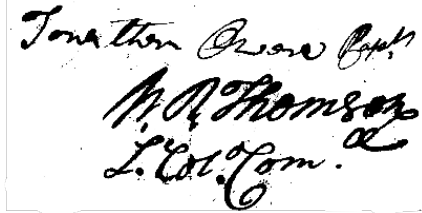 Jonathan Owens Capt.
W. R. Thomson
L. Col. Com.